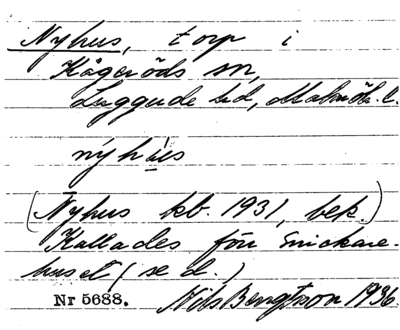 Nyhus, torp i
Kågeröds sn,
Luggude hd, Malmöh. l.
nyhus
(Nyhus kb. 1931, bek.)
Kallades förr Snickare-
huset (se d.)
Nr 5688. Nils Bengtsson 1936.